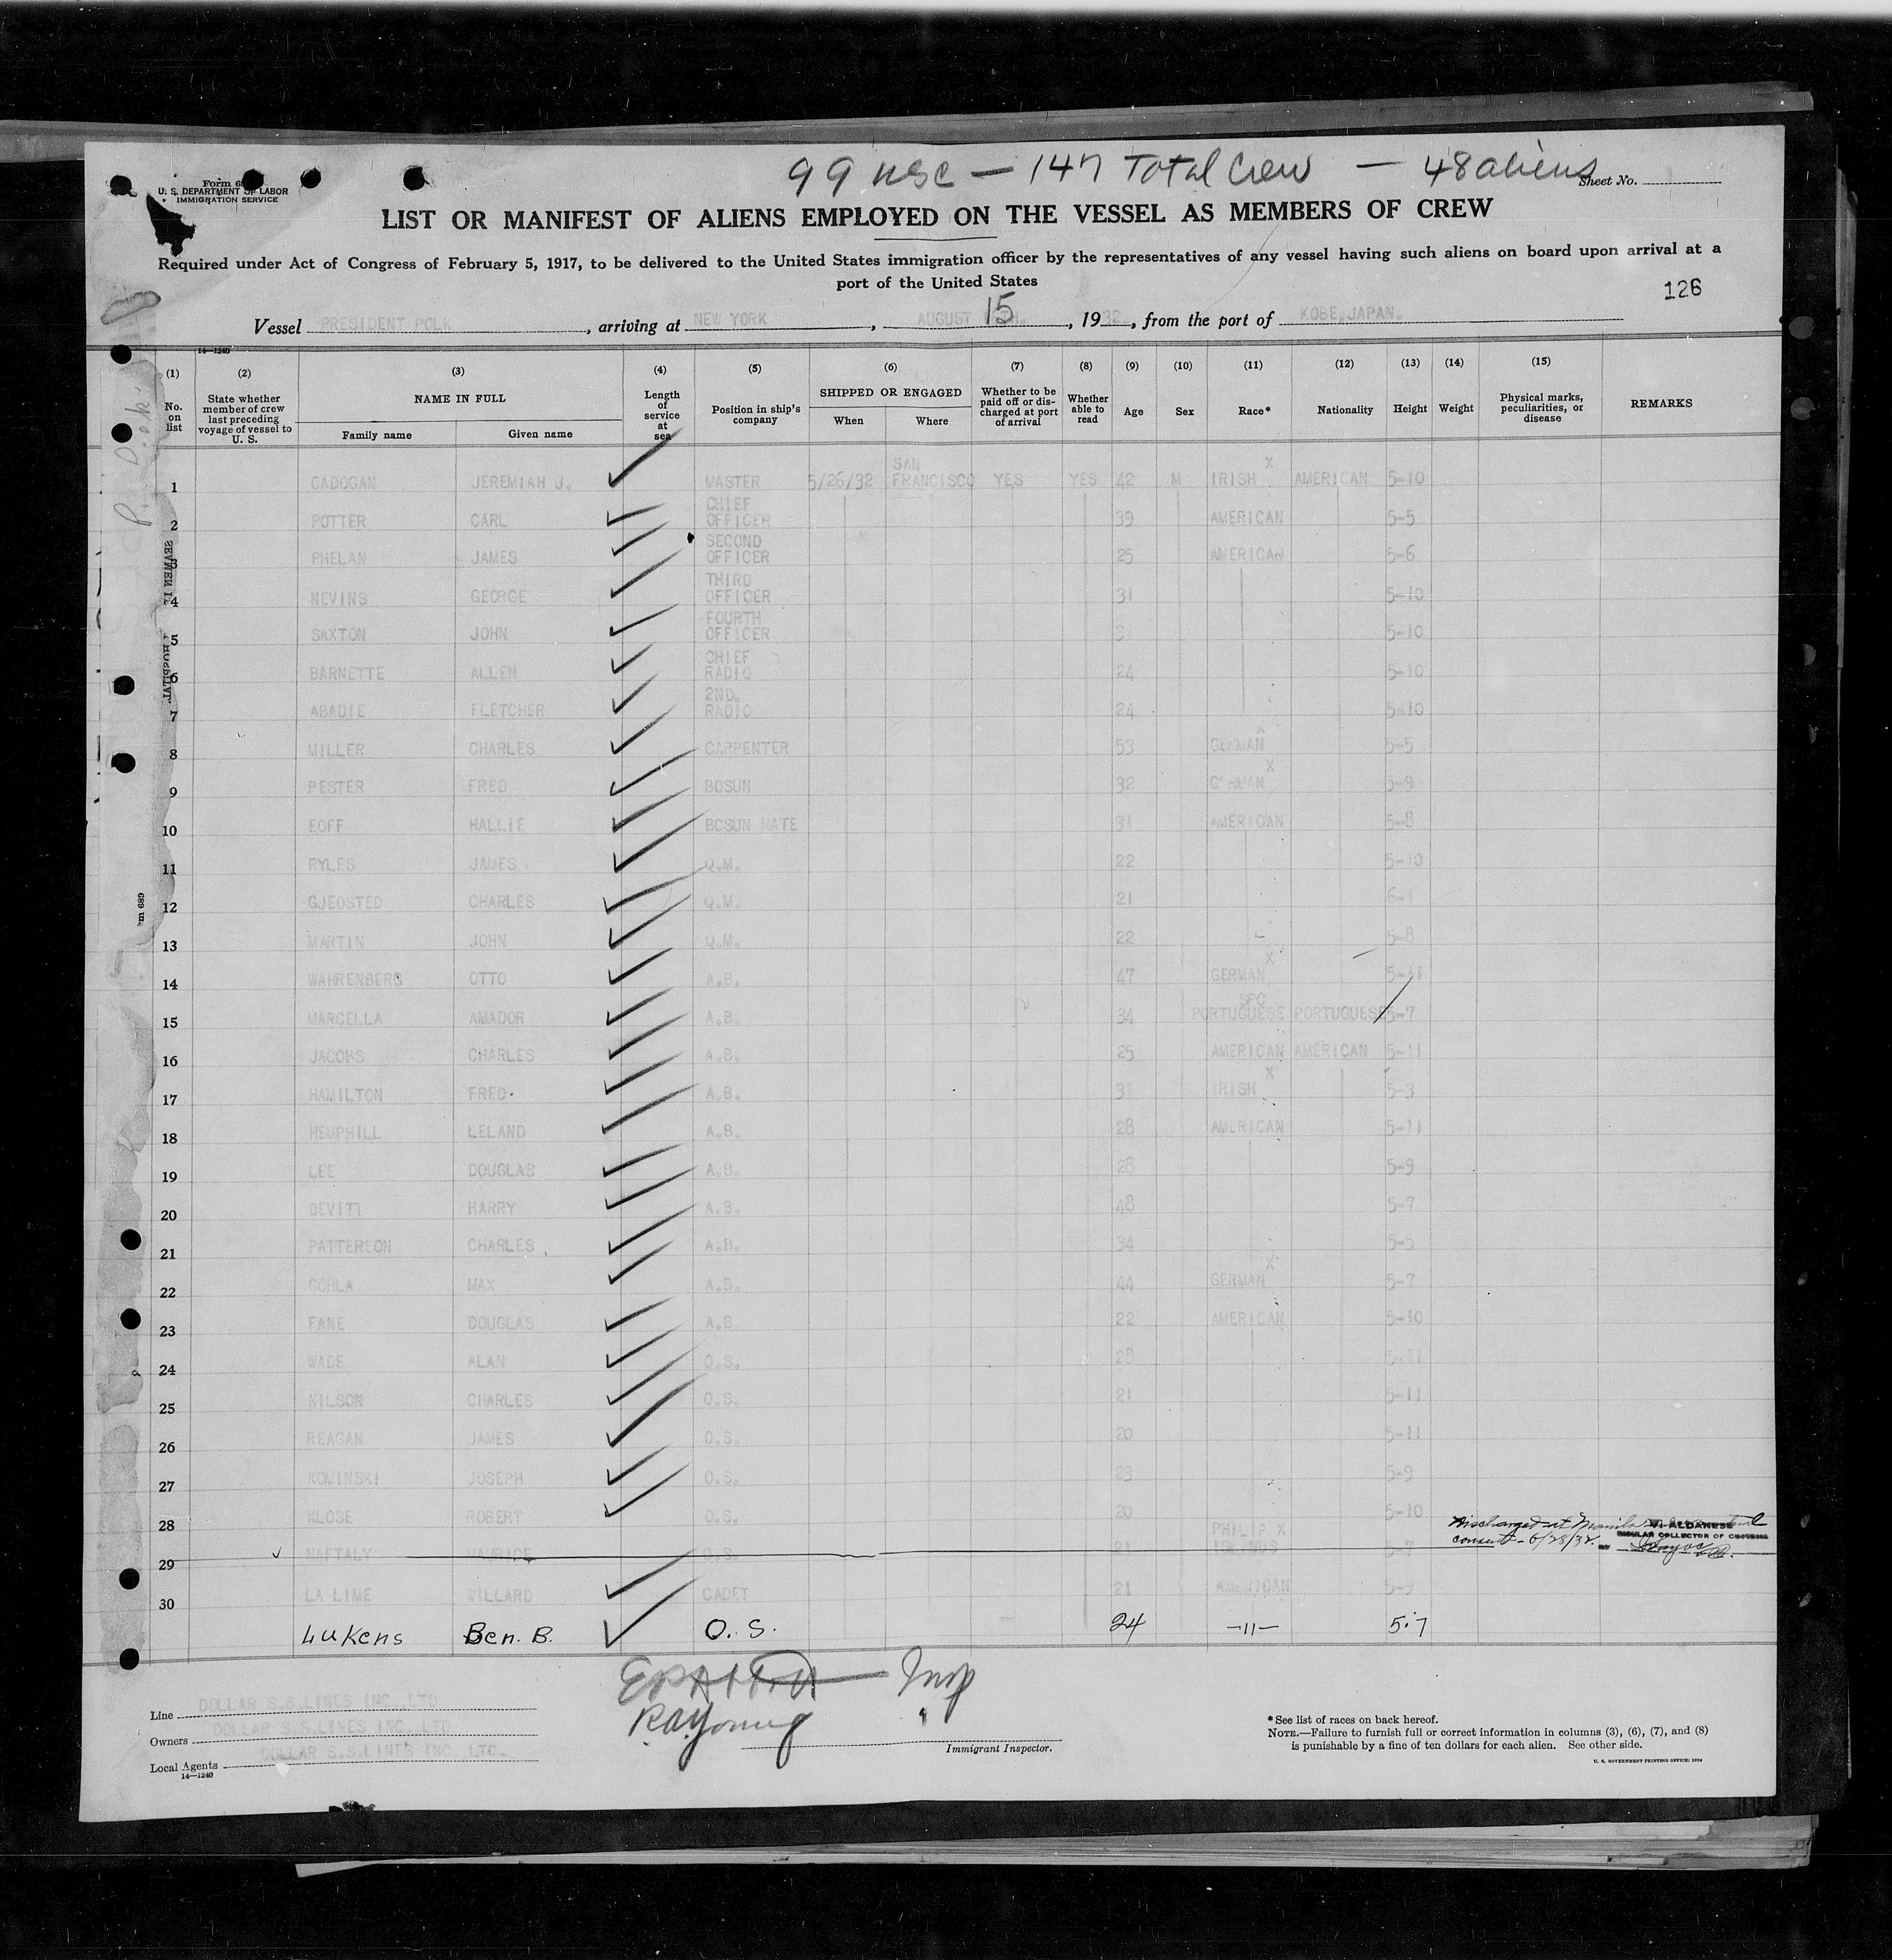 99 USC — 147 Total Crew — 48 aliens
U. S. DEPARTMENT OF LABOR
IMMIGRATION SERVICE
Sheet No.
LIST OR MANIFEST OF ALIENS EMPLOYED ON THE VESSEL AS MEMBERS OF CREW
Required under Act of Congress of February 5, 1917, to be delivered to the United States immigration officer by the representatives of any vessel having such aliens on board upon arrival at a
port of the United States
126
Vessel PRESIDENT POLK, arriving at NEW YORK, AUGUST 15, 1932, from the port of KOBE, JAPAN.
14—1240
(1) (2) (3) (4) (5) (6) (7) (8) (9) (10) (11) (12) (13) (14) (15)
No. on list
State whether member of crew last preceding voyage of vessel to U. S.
NAME IN FULL
Family name Given name
Length of service at sea
Position in ship's company
SHIPPED OR ENGAGED
When Where
Whether to be paid off or discharged at port of arrival
Whether able to read
Age Sex Race* Nationality Height Weight
Physical marks, peculiarities, or disease
REMARKS
1 CADOGAN JEREMIAH J. MASTER 5/26/32 SAN FRANCISCO YES YES 42 M IRISH X AMERICAN 5-10
2 POTTER CARL CHIEF OFFICER 39 AMERICAN 5-5
3 PHELAN JAMES SECOND OFFICER 25 AMERICAN 5-6
4 NEVINS GEORGE THIRD OFFICER 31 5-10
5 SAXTON JOHN FOURTH OFFICER 5-10
6 BARNETTE ALLEN CHIEF RADIO 24 5-10
7 ABADIE FLETCHER 2ND. RADIO 24 5-10
8 MILLER CHARLES CARPENTER 53 GERMAN X 5-5
9 PESTER FRED BOSUN 32 GERMAN X 5-9
10 EOFF HALLIE BOSUN MATE 31 AMERICAN 5-8
11 RYLES JAMES Q.M. 22 5-10
12 GJEDSTED CHARLES Q.M. 21 6-1
13 MARTIN JOHN Q.M. 22 5-8
14 WAHRENBERG OTTO A.B. 47 GERMAN X 5-11
15 MARCELLA AMADOR A.B. 34 SPC PORTUGUESE PORTUGUESE 5-7
16 JACOBS CHARLES A.B. 25 AMERICAN AMERICAN 5-11
17 HAMILTON FRED A.B. 31 IRISH X 5-3
18 HEMPHILL LELAND A.B. 28 AMERICAN 5-11
19 LEE DOUGLAS A.B. 28 5-9
20 DEVITT HARRY A.B. 48 5-7
21 PATTERSON CHARLES A.B. 34 5-5
22 GORLA MAX A.B. 44 GERMAN X 5-7
23 FANE DOUGLAS A.B. 22 AMERICAN 5-10
24 WADE ALAN O.S. 28 5-11
25 NILSON CHARLES O.S. 21 5-11
26 REAGAN JAMES O.S. 20 5-11
27 KOMINSKI JOSEPH O.S. 23 5-9
28 KLOSE ROBERT O.S. 20 5-10
29 NAFTALY MAURICE O.S. 21 PHILIP X ISLANDS 5-7 Discharged at Manila consent - 6/28/32. V. ALDANESE INSULAR COLLECTOR OF CUSTOMS
30 LA LIME WILLARD CADET 21 AMERICAN 5-3
Lukens Ben. B. O. S. 24 —11— 5.7
Insp
R.A. Young "
Immigrant Inspector.
Line DOLLAR S.S.LINES INC.,LTD
Owners DOLLAR S.S.LINES INC.,LTD
Local Agents DOLLAR S.S.LINES INC. LTD.
14—1240
* See list of races on back hereof.
NOTE.—Failure to furnish full or correct information in columns (3), (6), (7), and (8)
is punishable by a fine of ten dollars for each alien. See other side.